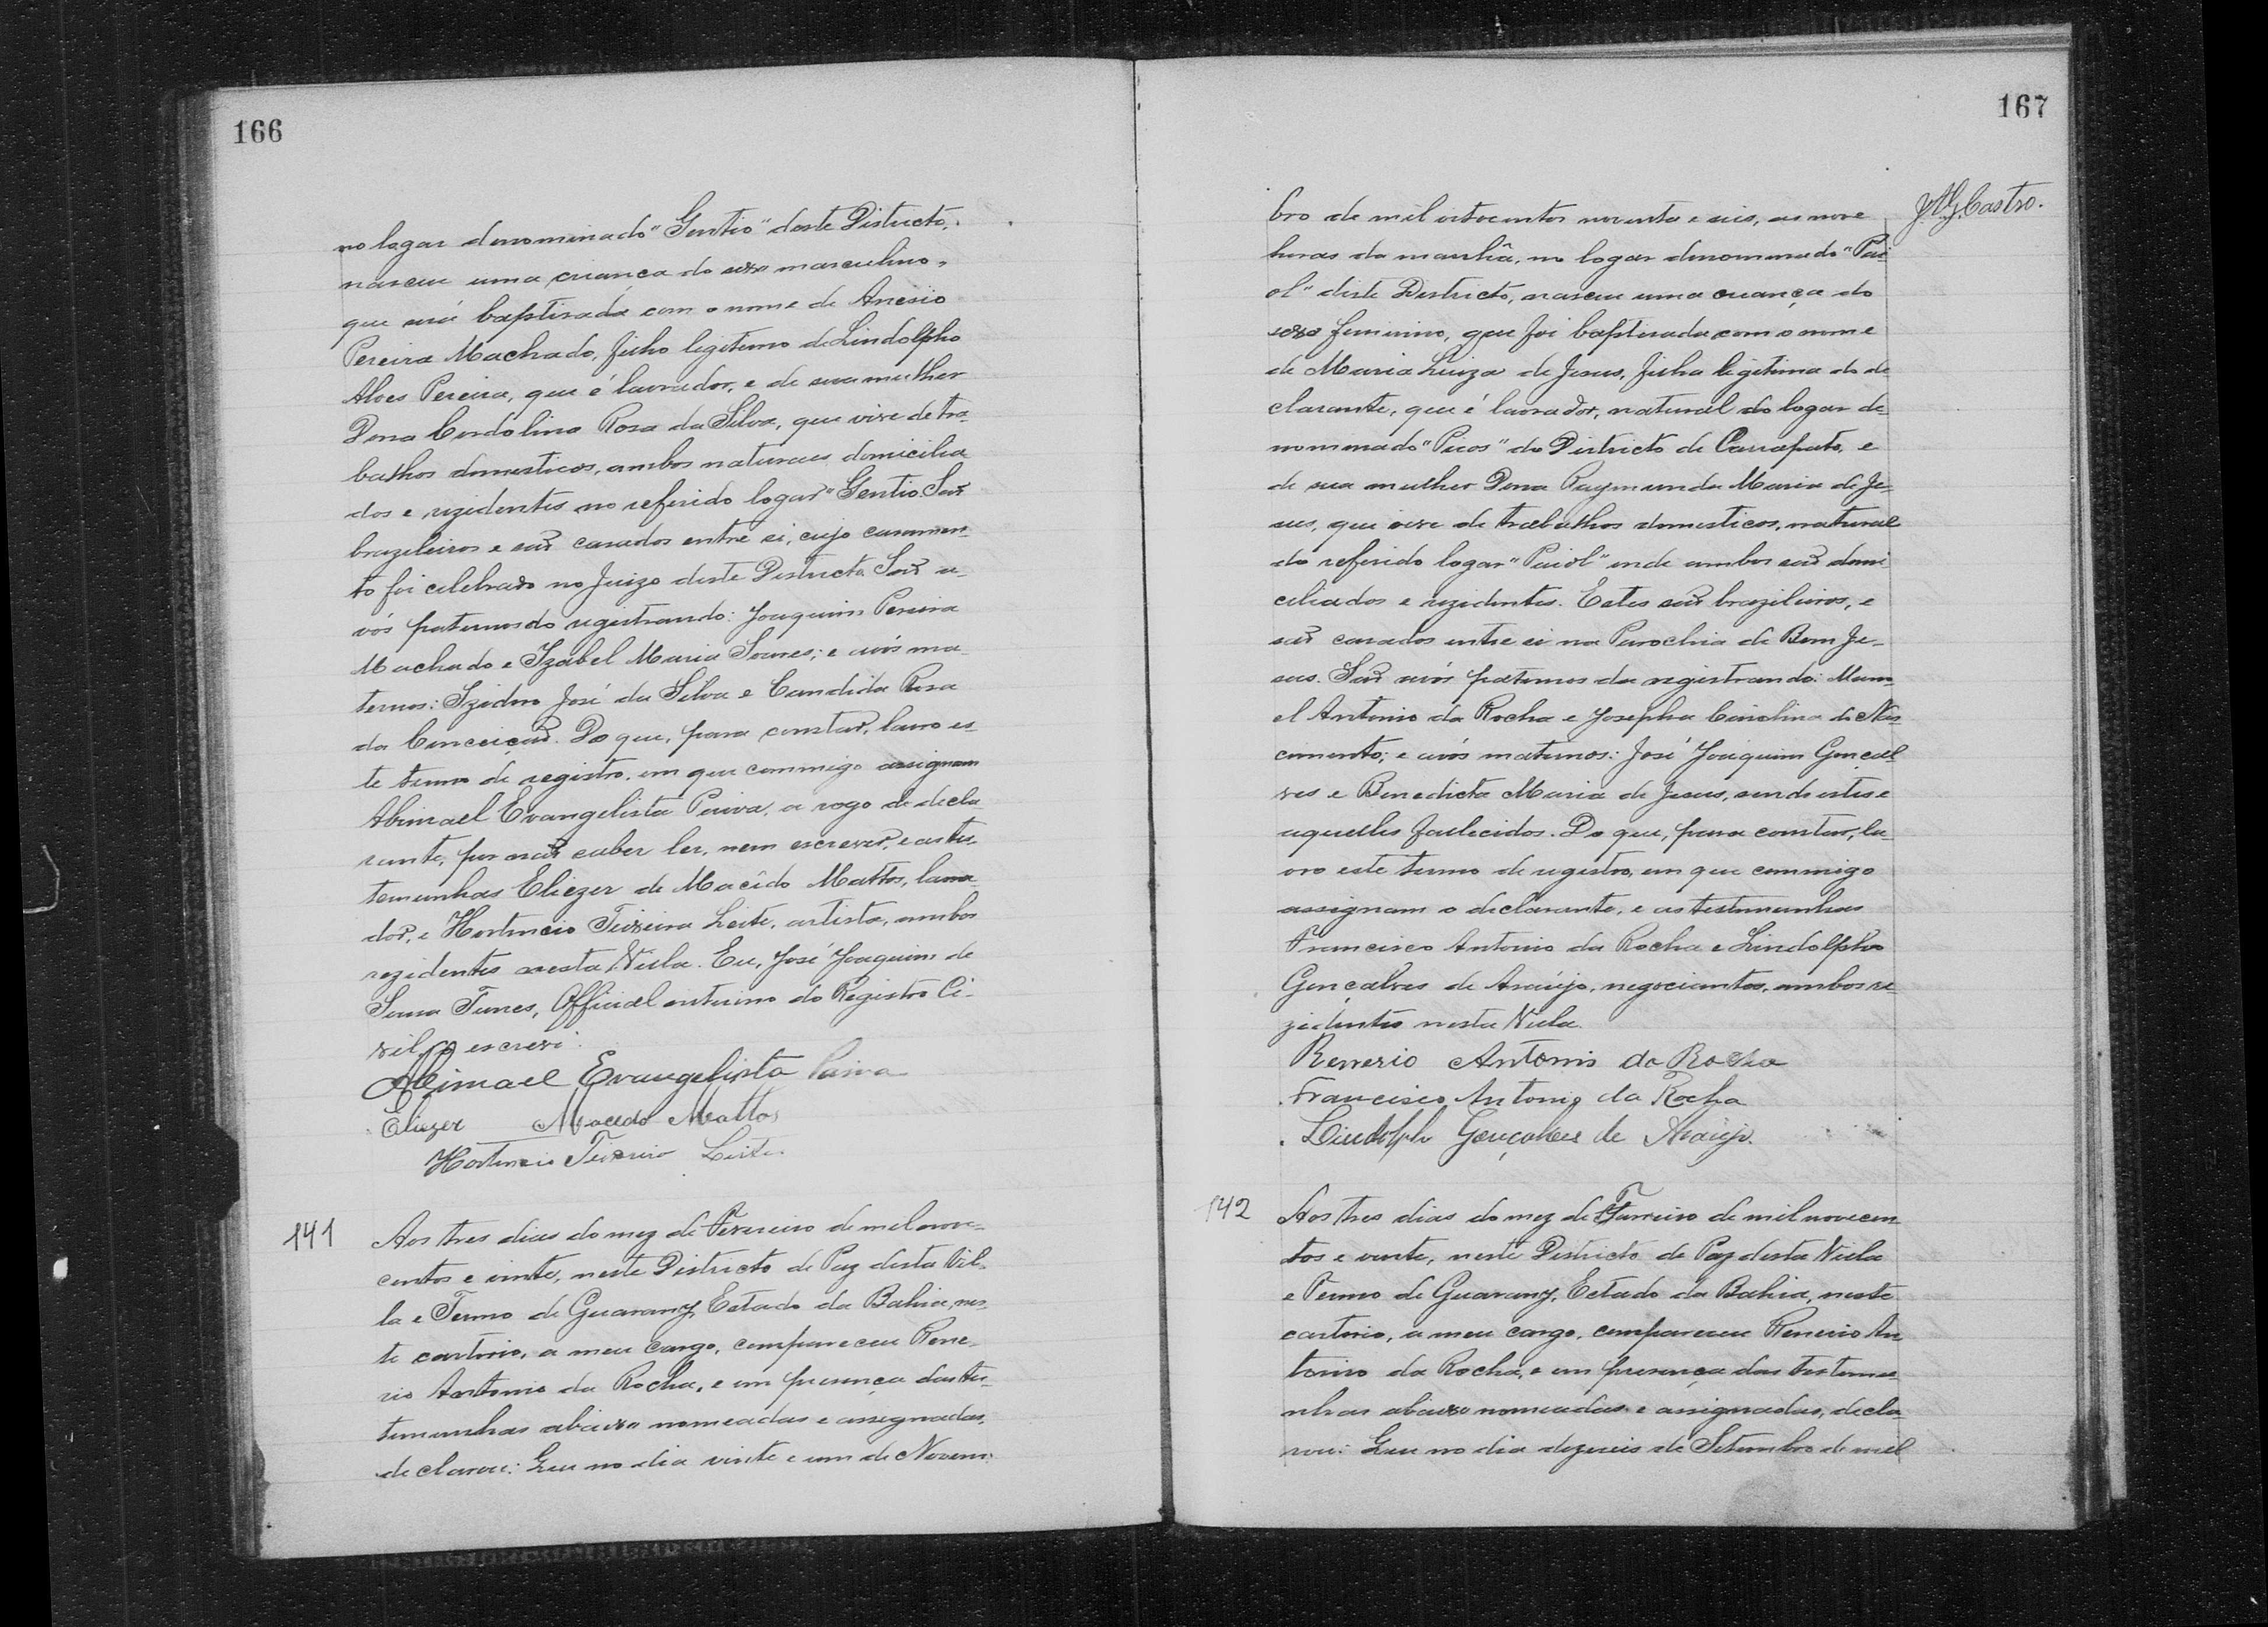 166
no logar denominado "Gentio" deste Districto,
nasceu uma criança do sexo masculino,
que será baptisada com o nome de Anesio
Pereira Machado, filho legitimo de Lindolpho
Alves Pereira, que é lavrador, e de sua mulher
Dona Cordolina Rosa da Silva, que vive de tra-
balhos domesticos, ambos naturaes domicilia
dos e rezidentes no referido logar "Gentio. São
brazileiros e são casados entre si, cujo casamen-
to foi celebrado no Juizo deste Districto. São a-
vós paternos do registrando: Joaquim Pereira
Machado e Izabel Maria Soares; e avós ma-
ternos: Izidoro José da Silva e Candida Rosa
da Conceição. Do que, para constar, lavro es-
te termo de registro, em que commigo assignam
Abimael Evangelista Paiva, a rogo do decla
rante, por não saber ler, nem escrever, e as tes-
temunhas Eliezer de Macêdo Mattos, lavra-
dor, e Hortencio Teixeira Leite, artista, ambos
rezidentes nesta Villa. Eu, José Joaquim de
Souza Tunes, Official interino do Registro Ci-
vil, o escrevi.
Abimael Evangelista Paiva
Eliezer Macedo Mattos
Hortencio Teixeira Leite.
141
Aos tres dias do mez de Fevereiro de mil nove-
centos e vinte, neste Districto de Paz desta Vil-
la e Termo de Guarany, Estado da Bahia, nes-
te cartorio, a meu cargo, compareceu Rene-
rio Antonio da Rocha, e em presença das tes-
temunhas abaixo nomeadas e assignadas,
declarou: Que no dia vinte e um de Novem-
167
J.A.G.Castro.
bro de mil oitocentos noventa e seis, as nove
horas da manhã, no logar denominado "Pai
ol" deste Districto, nasceu uma criança do
sexo feminino, que foi baptisada com o nome
de Maria Luiza de Jesus, filha legitima do de
clarante, que é lavrador, natural do logar de-
nominado "Picos" do Districto de Carrapato, e
de sua mulher Dona Raymunda Maria de Je-
sus, que vive de trabalhos domesticos, natural
do referido logar "Paiol" onde ambos são domi
ciliados e rezidentes. Estes são brazileiros, e
são casados entre si na Parochia de Bom Je-
sus. São avós paternos da registranda: Mano-
el Antonio da Rocha e Josepha Carolina do Nas-
cimento; e avós maternos: José Joaquim Gonçal
ves e Benedicta Maria de Jesus, sendo estes e
aquelles fallecidos. Do que, para constar, la-
vro este termo de registro, em que commigo
assignam o declarante, e as testemunhas
Francisco Antonio da Rocha e Lindolpho
Gonçalves de Araújo, negociantes, ambos re-
zidentes nesta Villa.
Renerio Antonio da Rocha
Francisco Antonio da Rocha
Lindolpho Gonçalves de Araujo.
142
Aos tres dias do mez de Fevereiro de mil novecen
tos e vinte, neste Districto de Paz desta Villa
e Termo de Guarany, Estado da Bahia, neste
cartorio, a meu cargo, compareceu Renerio An
tonio da Rocha, e em presença das testemu
nhas abaixo nomeadas e assignadas, decla-
rou: Que no dia dezeseis de Setembro de mil